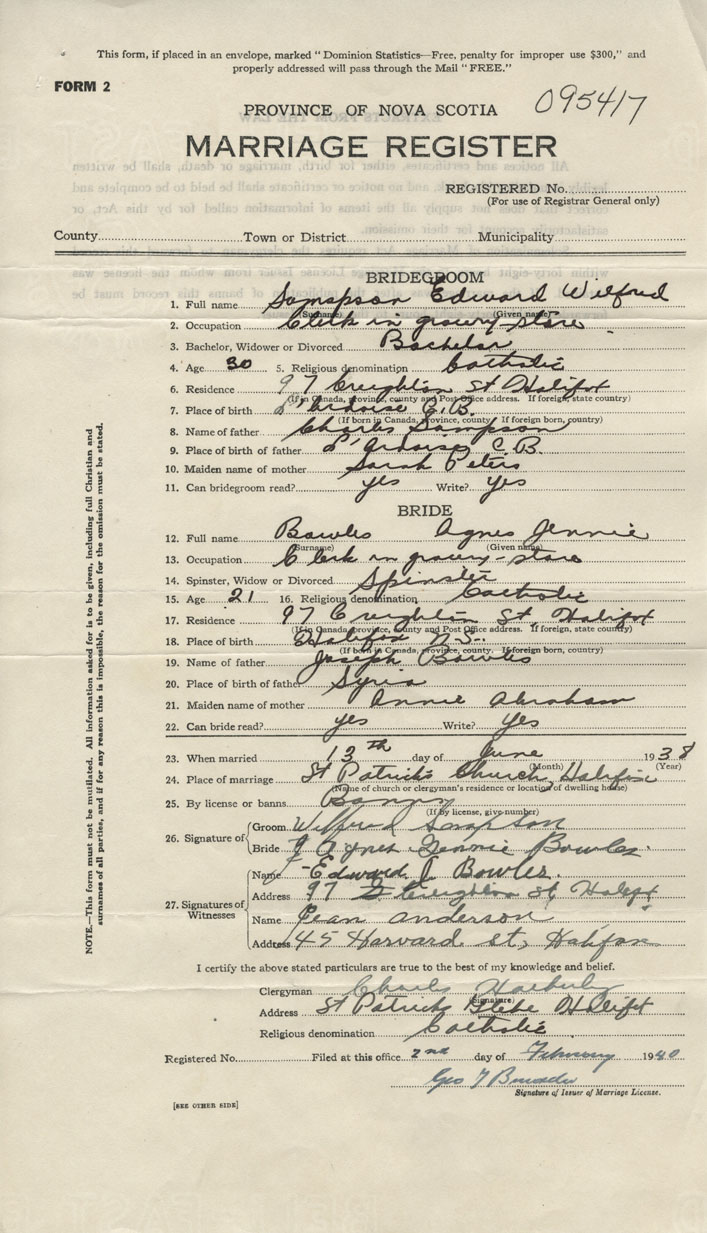 This form, if placed in an envelope, marked "Dominion Statistics—Free, penalty for improper use $300," and
properly addressed will pass through the Mail "FREE."
FORM 2
PROVINCE OF NOVA SCOTIA
095417
MARRIAGE REGISTER
REGISTERED No.
(For use of Registrar General only)
County Town or District Municipality
BRIDEGROOM
1. Full name Sampson Edward Wilfred
(Surname) (Given name)
2. Occupation Clerk in grocery-store
3. Bachelor, Widower or Divorced Bachelor
4. Age 30 5. Religious denomination Catholic
6. Residence 97 Creighton St Halifax
(If in Canada, province, county and Post Office address. If foreign, state country)
7. Place of birth L'Ardoise C.B.
(If born in Canada, province, county. If foreign born, country)
8. Name of father Charles Sampson
9. Place of birth of father L'Ardoise C.B.
10. Maiden name of mother Sarah Peters
11. Can bridegroom read? yes Write? yes
BRIDE
12. Full name Bowles Agnes Jennie
(Surname) (Given name)
13. Occupation Clerk in grocery-store
14. Spinster, Widow or Divorced Spinster
15. Age 21 16. Religious denomination Catholic
17. Residence 97 Creighton St, Halifax
(If in Canada, province, county and Post Office address. If foreign, state country)
18. Place of birth Halifax N.S.
(If born in Canada, province, county. If foreign born, country)
19. Name of father Joseph Bowles
20. Place of birth of father Syria
21. Maiden name of mother Annie Abraham
22. Can bride read? yes Write? yes
23. When married 13th day of June 1938
(Month) (Year)
24. Place of marriage St Patrick's Church, Halifax
(Name of church or clergyman's residence or location of dwelling house)
25. By license or banns Banns
(If by license, give number)
26. Signature of
Groom Wilfred Sampson
Bride Agnes Jennie Bowles
27. Signatures of Witnesses
Name Edward J Bowles
Address 97 Creighton St Halifax
Name Jean Anderson
Address 45 Harvard St, Halifax
I certify the above stated particulars are true to the best of my knowledge and belief.
Clergyman Charles
(Signature)
Address St Patrick's Glebe Halifax
Religious denomination Catholic
Registered No. Filed at this office 2nd day of February 1940
Geo
Signature of Issuer of Marriage License.
[SEE OTHER SIDE]
NOTE.—This form must not be mutilated. All information asked for is to be given, including full Christian and
surnames of all parties, and if for any reason this is impossible, the reason for the omission must be stated.